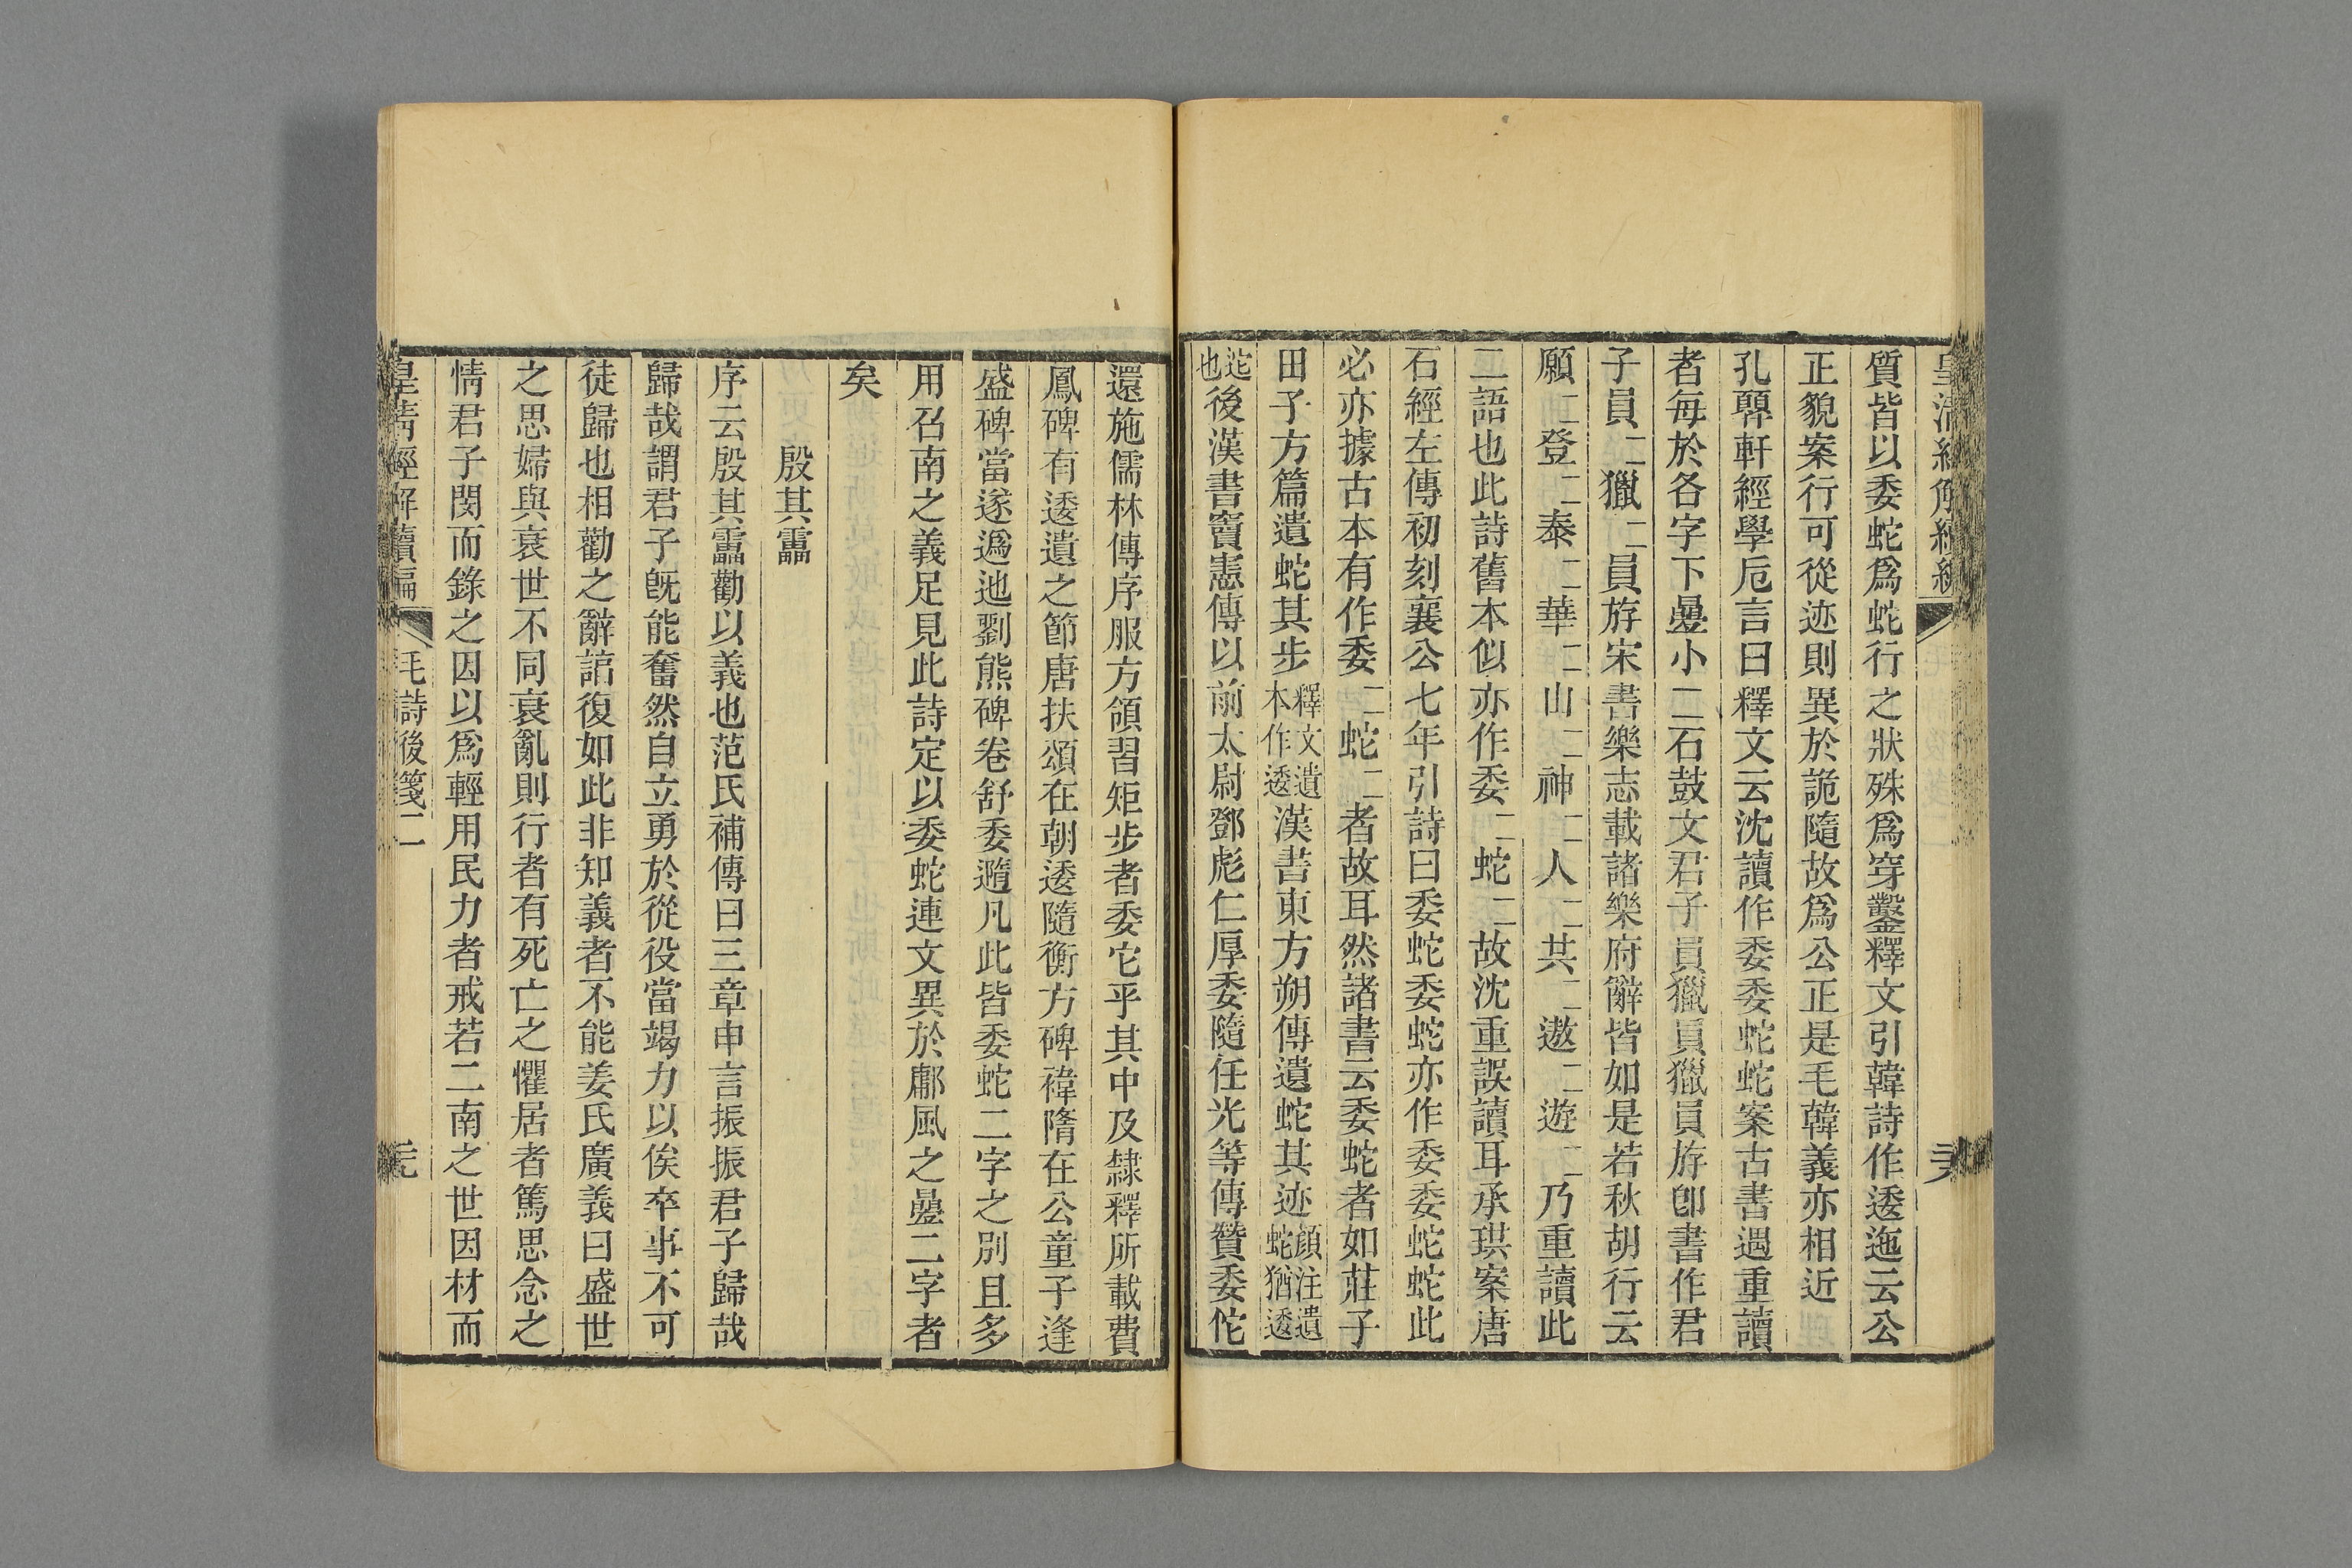 皇清經解續編
質皆以委蛇爲蛇行之狀殊爲穿鑿釋文引韓詩作逶迤云公
正貌案行可從迹則異於詭隨故爲公正是毛韓義亦相近
孔顨軒經學卮言曰釋文云沈讀作委委蛇蛇案古書遇重讀
者每於各字下疊小二石鼓文君子員獵員獵員斿卽書作君
子員二獵二員斿宋書樂志載諸樂府辭皆如是若秋胡行云
願二登二泰二華二山二神二人二共二遨二遊二乃重讀此
二語也此詩舊本似亦作委二蛇二故沈重誤讀耳承珙案唐
石經左傳初刻襄公七年引詩曰委蛇委蛇亦作委委蛇蛇此
必亦據古本有作委二蛇二者故耳然諸書云委蛇者如莊子
田子方篇遺蛇其步釋文遺本作逶漢書東方朔傳遺蛇其迹顔注遺蛇猶逶
迱也後漢書竇憲傳以前太尉鄧彪仁厚委隨任光等傳贊委佗
還施儒林傳序服方領習矩步者委它乎其中及隸釋所載費
鳳碑有逶遺之節唐扶頌在朝逶隨衡方碑褘隋在公童子逢
盛碑當遂逶迆劉熊碑卷舒委遀凡此皆委蛇二字之別且多
用召南之義足見此詩定以委蛇連文異於鄘風之疊二字者
矣
殷其靁
序云殷其靁勸以義也范氏補傳曰三章申言振振君子歸哉
歸哉謂君子旣能奮然自立勇於從役當竭力以俟卒事不可
徒歸也相勸之辭諄復如此非知義者不能姜氏廣義曰盛世
之思婦與衰世不同衰亂則行者有死亡之懼居者篤思念之
情君子閔而錄之因以爲輕用民力者戒若二南之世因材而
皇清經解續編 毛詩後箋二